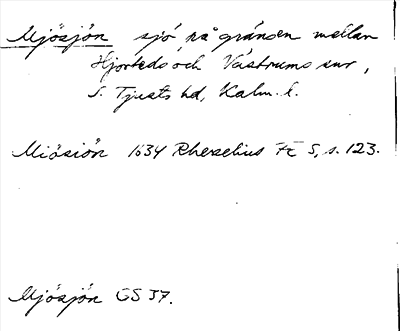 Mjösjön sjö på gränsen mellan
Hjorteds och Västrums snr,
S. Tjusts hd, Kalm. l.
Miösiön 1634 Rhezelius FE 5, s. 123.
Mjösjön GS 37.